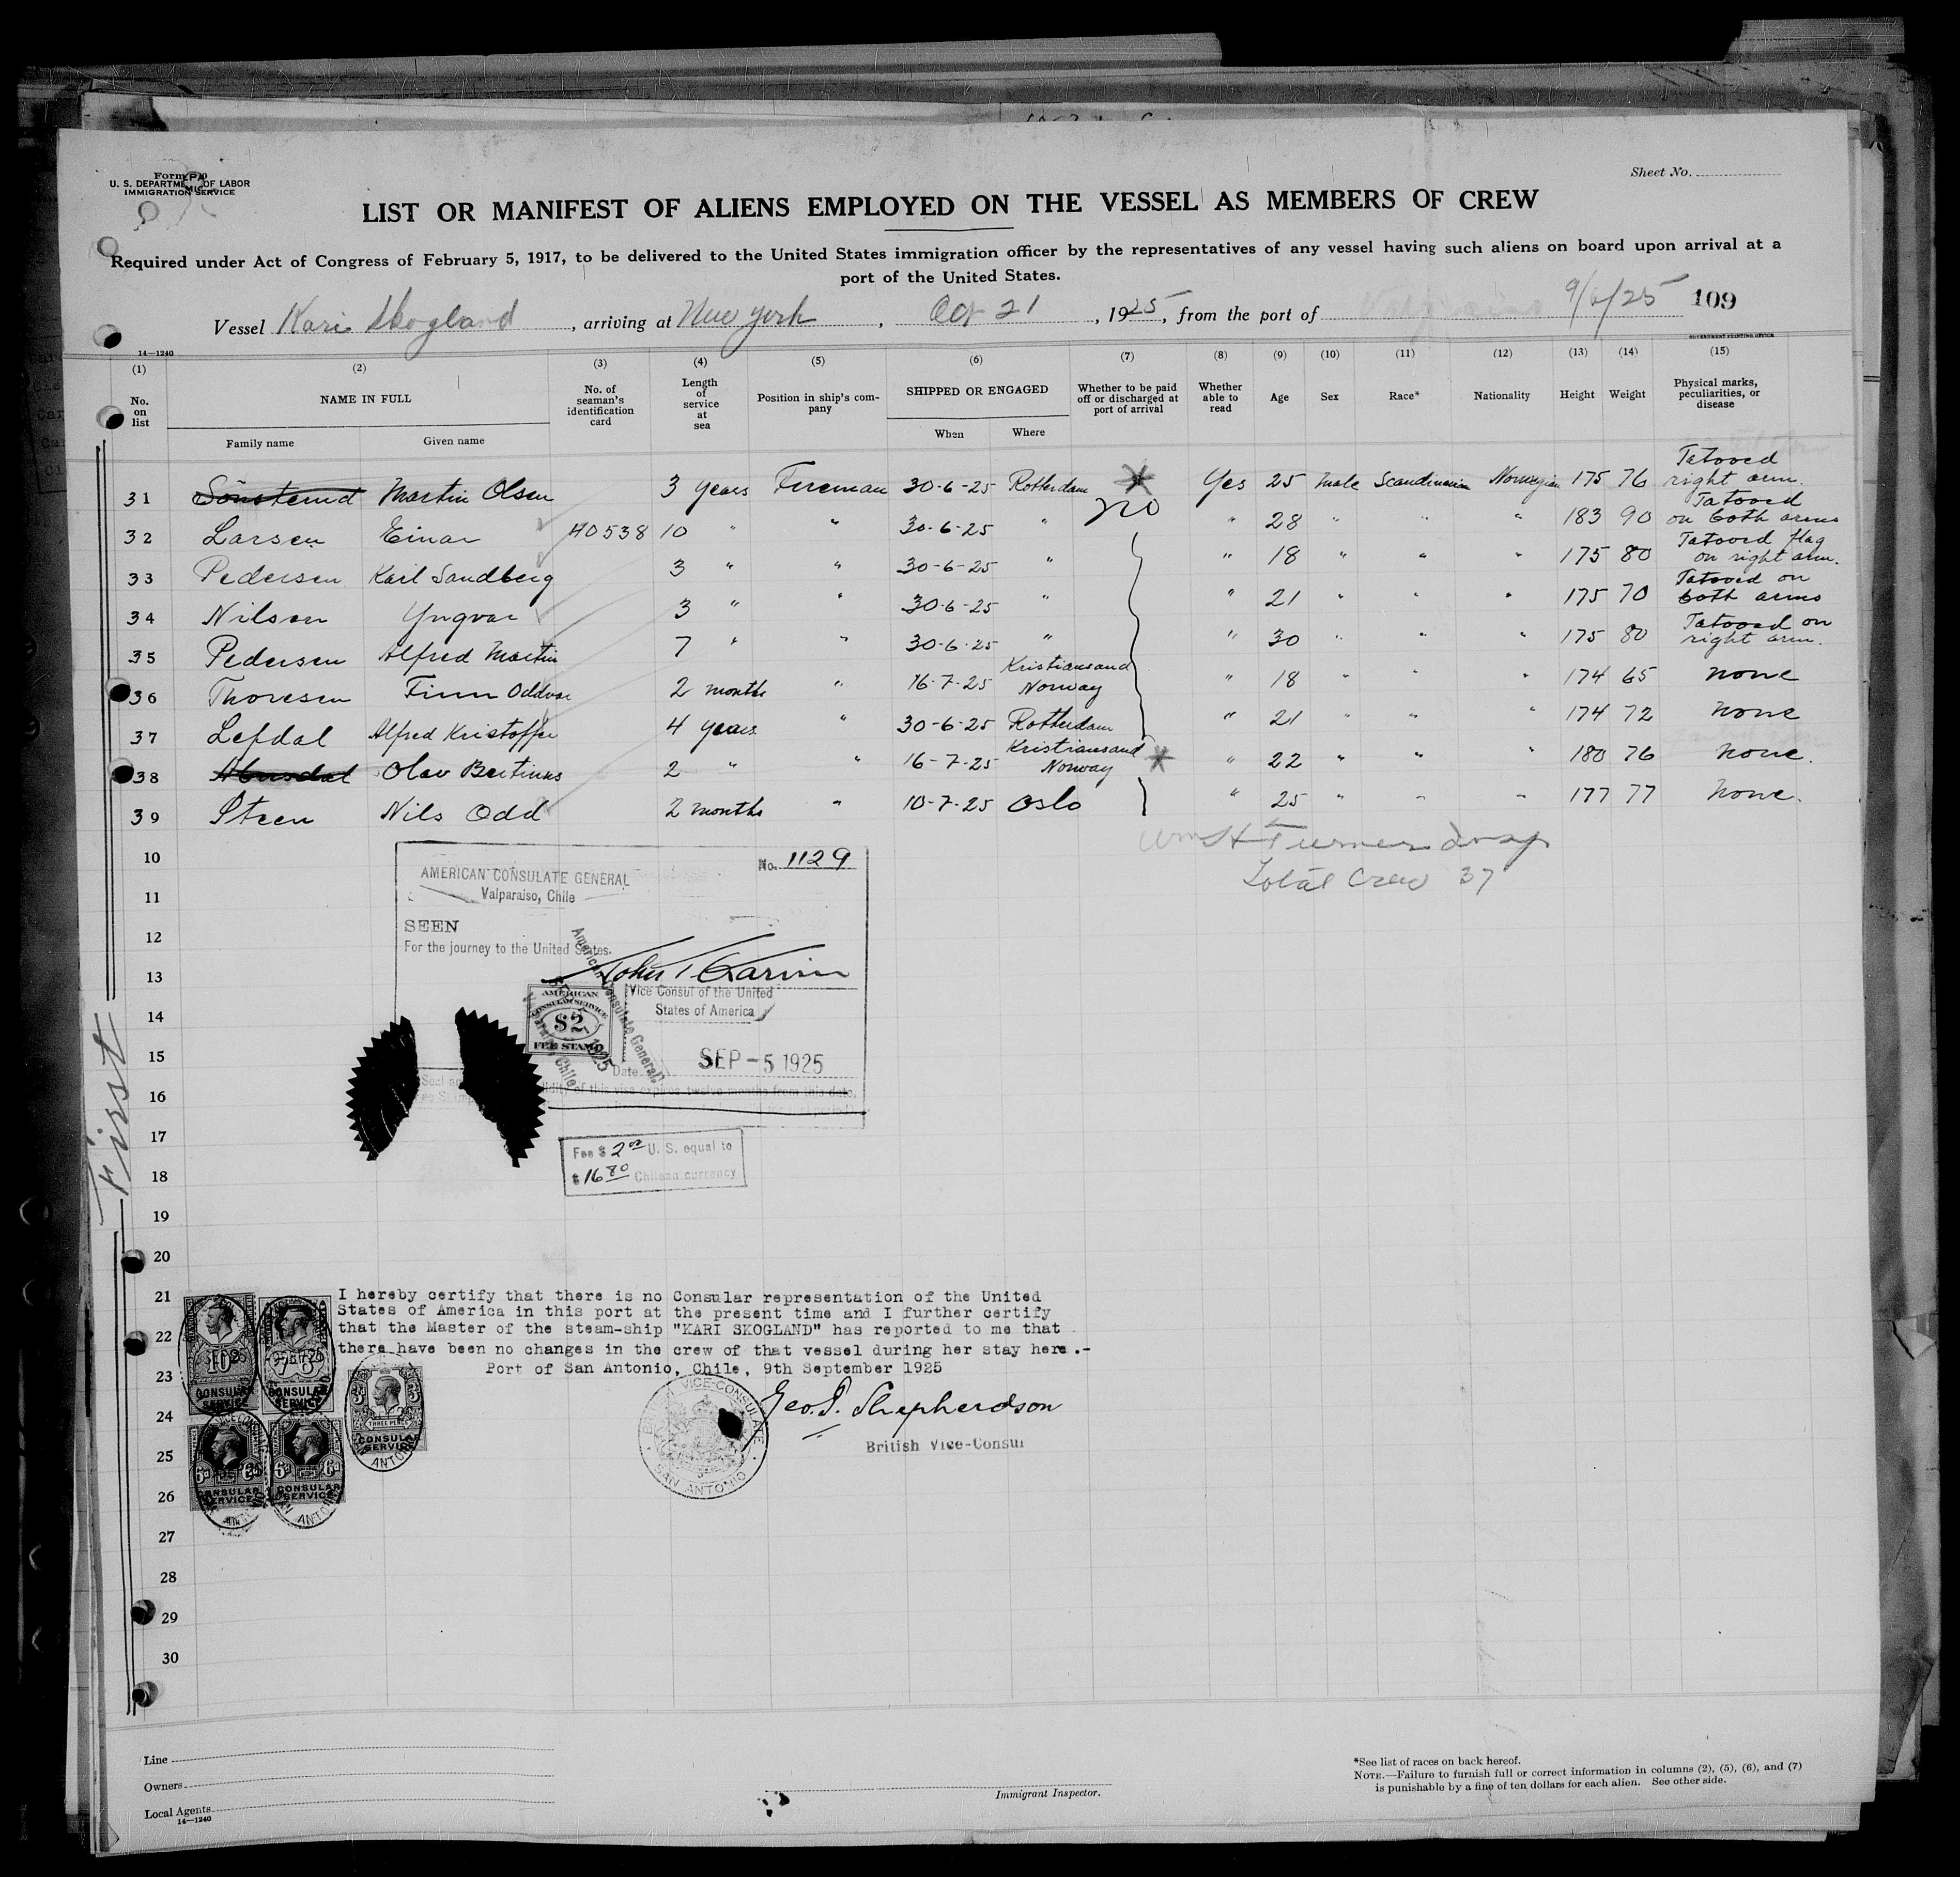 Form
U. S. DEPARTMENT OF LABOR
IMMIGRATION SERVICE
Sheet No.
LIST OR MANIFEST OF ALIENS EMPLOYED ON THE VESSEL AS MEMBERS OF CREW
Required under Act of Congress of February 5, 1917, to be delivered to the United States immigration officer by the representatives of any vessel having such aliens on board upon arrival at a
port of the United States.
Vessel Kari Skogland, arriving at New York, Oct 21, 1925, from the port of 9/6/25 109
14—1240
GOVERNMENT PRINTING OFFICE
(1) (2) (3) (4) (5) (6) (7) (8) (9) (10) (11) (12) (13) (14) (15)
No. on list NAME IN FULL No. of seaman's identification card Length of service at sea Position in ship's company SHIPPED OR ENGAGED Whether to be paid off or discharged at port of arrival Whether able to read Age Sex Race* Nationality Height Weight Physical marks, peculiarities, or disease
Family name Given name When Where
31 Martin Olsen 3 years Fireman 30-6-25 Rotterdam no Yes 25 male Scandinavian Norwegian 175 76 Tatooed right arm.
32 Larsen Einar 40538 10 " " 30-6-25 " " 28 " " " 183 90 Tatooed on both arms
33 Pedersen Karl Sandberg 3 " " 30-6-25 " " 18 " " " 175 80 Tatooed flag on right arm.
34 Nilsen Yngvar 3 " " 30-6-25 " " 21 " " " 175 70 Tatooed on both arms
35 Pedersen Alfred Martin 7 " " 30-6-25 " " 30 " " " 175 80 Tatooed on right arm.
36 Thoresen Finn Oddvar 2 months " 16-7-25 Kristiansand Norway " 18 " " " 174 65 none
37 Lefdal Alfred Kristoffer 4 years " 30-6-25 Rotterdam " 21 " " " 174 72 none
38 Olav Bertinus 2 " " 16-7-25 Kristiansand Norway " 22 " " 180 76 none.
39 Steen Nils Odd 2 months " 10-7-25 Oslo " 25 " " " 177 77 none.
Wm H Turner Insp
Total Crew 37
10
11
12
13
14
15
16
17
18
19
20
21
22
23
24
25
26
27
28
29
30
First
No. 1129
AMERICAN CONSULATE GENERAL
Valparaiso, Chile
SEEN
For the journey to the United States.
Vice Consul of the United
States of America
AMERICAN
CONSULAR SERVICE
$2
FEE STAMP
American Consulate General
Valparaiso, Chile
Date SEP -5 1925
validity of this visa expires twelve months from this date,
Fee $ 2.00 U. S. equal to
$ 16 80 Chilean currency
I hereby certify that there is no Consular representation of the United
States of America in this port at the present time and I further certify
that the Master of the steam-ship "KARI SKOGLAND" has reported to me that
there have been no changes in the crew of that vessel during her stay here.-
Port of San Antonio, Chile, 9th September 1925
Geo. S. Shepherdson
British Vice-Consul
BRITISH VICE-CONSULATE
SAN ANTONIO
CONSULAR SERVICE
CONSULAR SERVICE
THREE PENCE
CONSULAR SERVICE
6d 6d
CONSULAR SERVICE
6d 6d
CONSULAR SERVICE
Line
Owners
Local Agents
14—1240
Immigrant Inspector.
*See list of races on back hereof.
NOTE.—Failure to furnish full or correct information in columns (2), (5), (6), and (7)
is punishable by a fine of ten dollars for each alien. See other side.